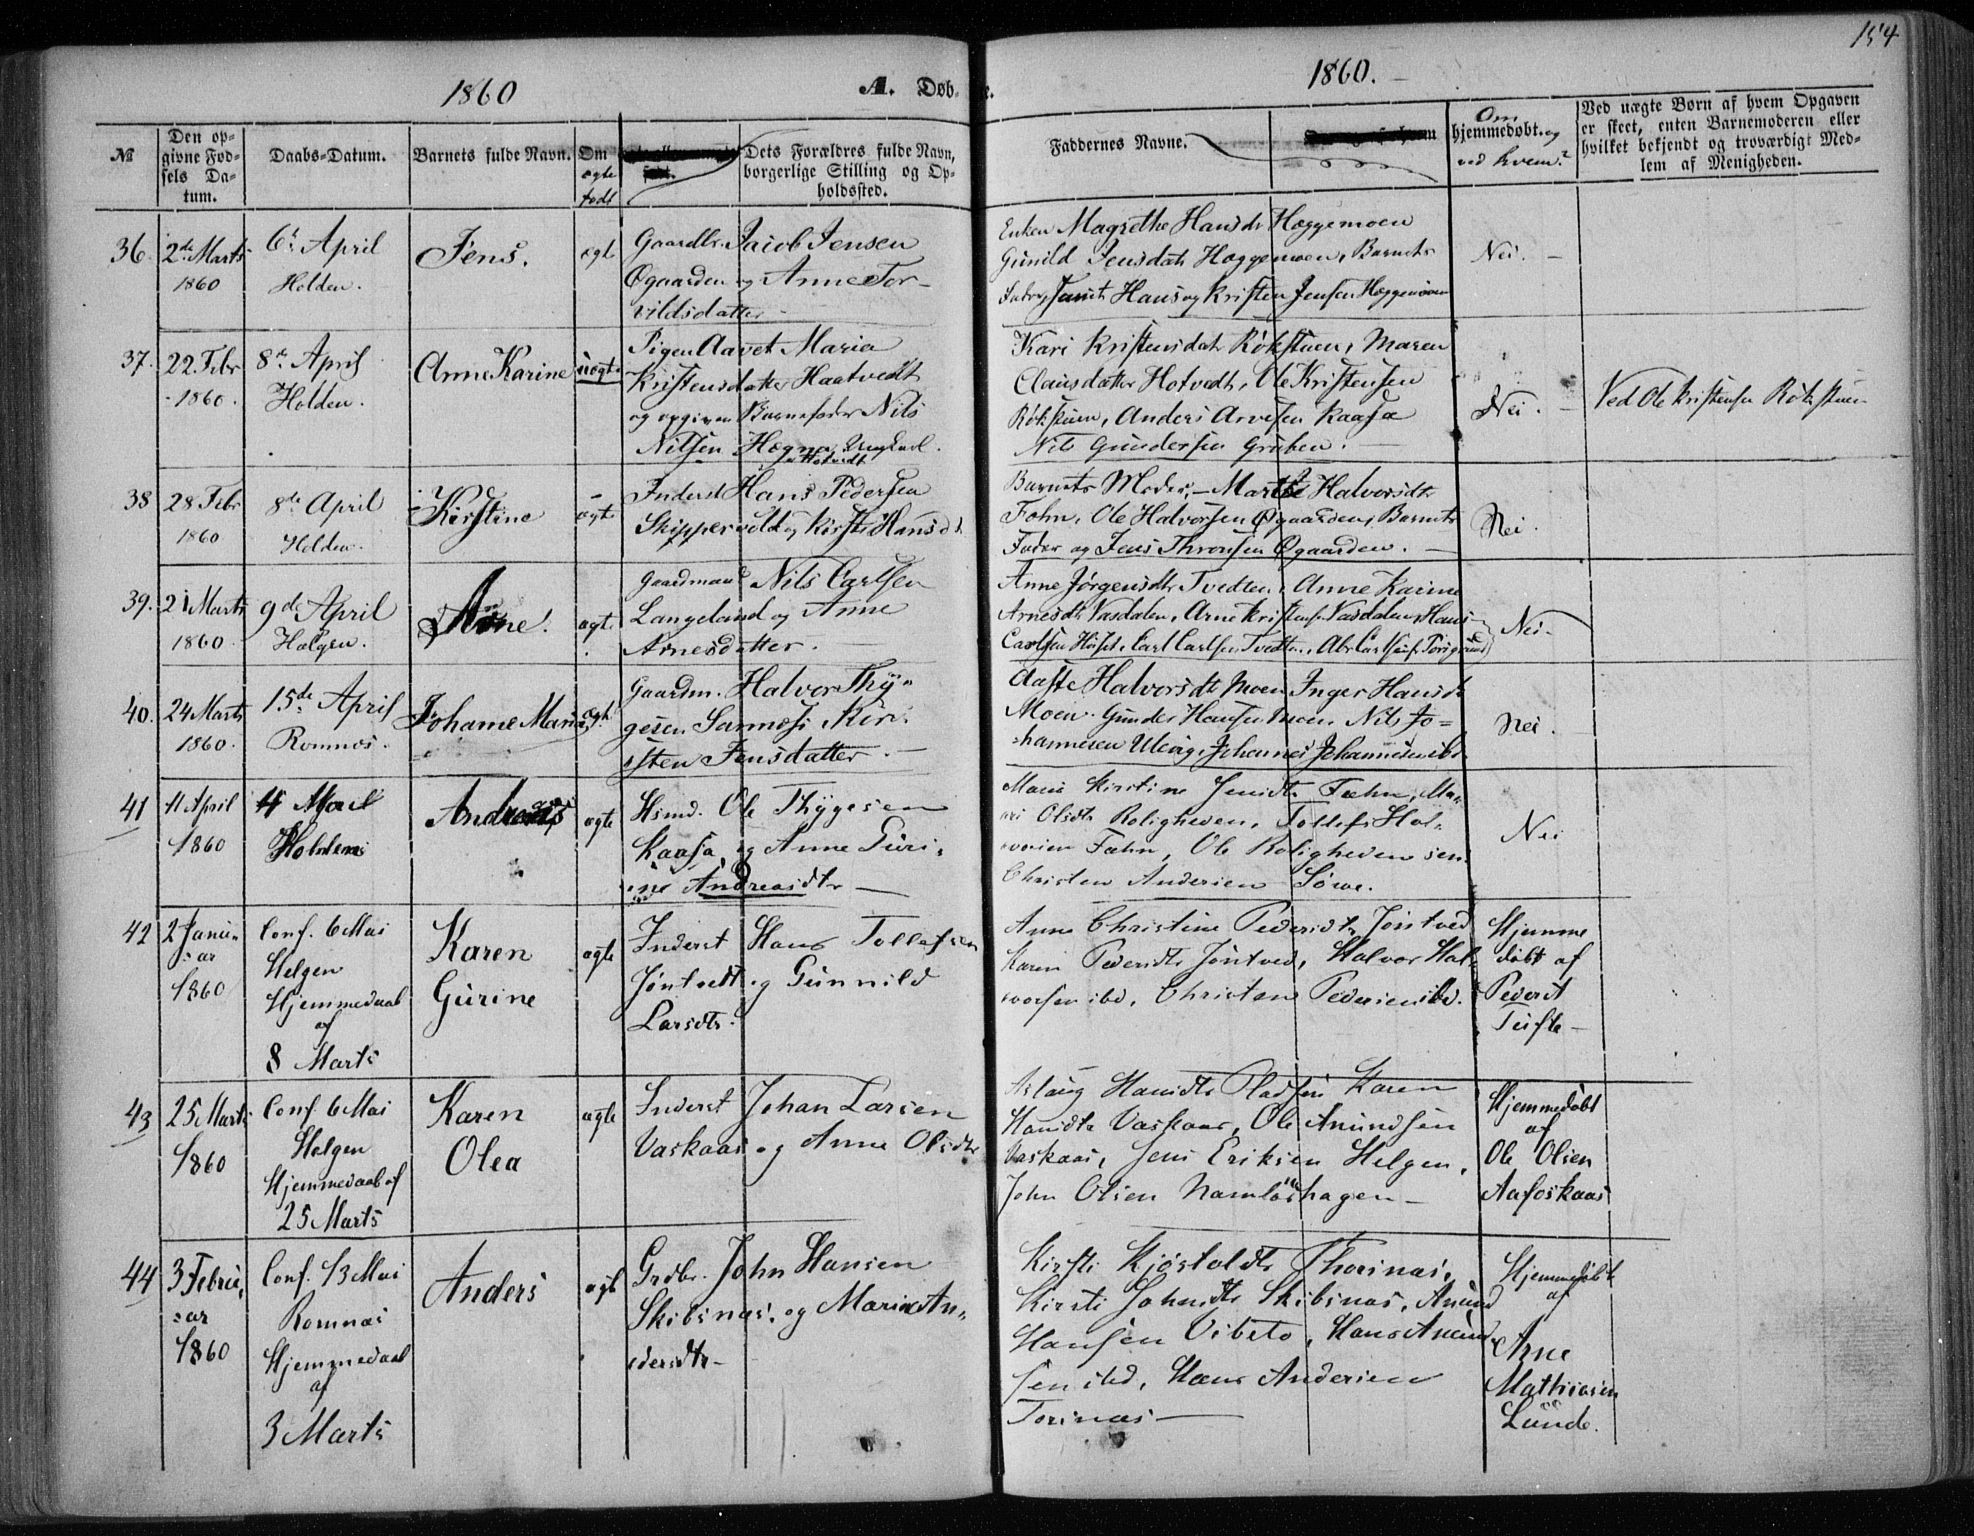 154
1860
A. Døb-
e.
1860.
№
Den op-
givne Fød-
sels Da-
tum.
Daabs-Datum.
Barnets fulde Navn.
Om
ægte
født
Dets Forældres fulde Navn,
borgerlige Stilling og Op-
holdssted.
Faddernes Navne.
Om
hjemmedøbt. og
ved hvem?
Ved uægte Børn af hvem Opgaven
er skeet, enten Barnemoderen eller
hvilket bekjendt og troværdigt Med-
lem af Menigheden.
36.
2de Marts
1860
6t April
Holden.
Jens.
ægte
Gaardbr. Jacob Jensen
Øgaarden og Anne Tor-
vildsdatter
Enken Magrethe Hansdtr Hæggemoen
Gunild Jensdatr Hæggemoen, Barnets
Fader, samt Hans og Kristen Jensen Hæggemoen
Nei. -
37.
22 Febr
1860.
8de April
Holden.
Anne Karine
uægte
Pigen Aavet Maria
Kristensdatter Haatvedt
og opgiven Barnefader Nils
Nilsen Hægna, Ungkarl.
Hotvedt
Kari Kristensdatr Rökstuen, Maren
Clausdatter Hotvedt, Ole Kristensen
Rökstuen, Anders Arvesen Kaasa
Nils Gundersen Gruben. -
Nei. -
Ved Ole Kristensen Rökstuen
38
28 Febr
1860
8de April
Holden.
Kirstine
ægte
Inderst Hans Pedersen
Skippervold og Kirsti Hansdt
Barnets Moder, - Marthe Halvorsdtr
Fæhn, Ole Halvorsen Øgaarden, Barnets
Fader og Jens Thronsen Øgaarden. -
Nei.
39.
21 Marts
1860.
9de April
Hælgen.
Arne.
ægte.
Gaardmand Nils Carlsen
Langeland og Anne
Arnesdatter. -
Anne Jörgensdtr Tvedten, Anne Karine
Arnesdtr Vasdalen, Arne Kristens. Vasdalen, Hans
Carlsen Huset, Carl Carlsen Tvedten, Abr. Carlsen
Nei.
40.
24 Marts
1860.
15de April
Romnes.
Johanne Maria
ægte
Gaardm. Halvor Thy-
gesen Sannæs, Kir-
sten Jensdatter. -
Aaste Halvorsdt Moen Inger Hansdt
Moen. Gunder Hansen Moen, Nils Jo-
hannesen Ulevig, Johannes Johannesen ibd
Nei.
41
11 April
1860
Holden
Andreas
ægte
Hsmd. Ole Thygesen
Kaasa og Anne Guri-
ne Andreasdtr -
Maria Kirstine Jensdtr Fæhn, Ma-
ri Olsdtr Roligheden, Tollef Hal-
vorsen Fæhn, Ole Roligheden sen.
Christen Andersen Söve.
Nei
42
2 Janu-
ar
1860
Conf. 6 Mai
Helgen
Hjemmedaab
af
8 Marts
Karen
Gurine
ægte
Inderst Hans Tollefsen
Jöntvedt og Gunnild
Larsdtr.
Anne Christine Pedersdtr Jöntved
Karen Pedersdtr Jöntved, Halvor Hal-
vorsen ibd, Christen Pedersen ibd.
Hjemme
döbt af
Peder
Tufte -
43
25 Marts
1860
Conf. 6 Mai
Helgen
Hjemmedaab af
25 Marts
Karen
Olea
ægte
Inderst Johan Larsen
Vaskaas og Anne Olsdtr
Aslaug Hansdtr Pladsen Karen
Hansdtr Vaskaas, Ole Anundsen
Vaskaas, Jens Eriksen Helgen,
John Olsen Namløshagen -
Hjemmedöbt
af
Ole Olsen
Aafoskaas
44
3 Febru-
ar
1860
Conf. 13 Mai
Romnæs
Hjemmedaab
af
3 Marts
Anders
ægte
Grdbr. John Hansen
Skibsnæs, og Maria An-
dersdtr -
Kirsti Kjöstoldtr Thorsnæs,
Kirsti Johnsdtr Skibsnæs, Anund
Hansen Vibeto, Hans Anund-
sen ibd, Hans Andersen
Torsnæs -
Hjemmedöbt
af
Arne
Mathiasen
Lunde.